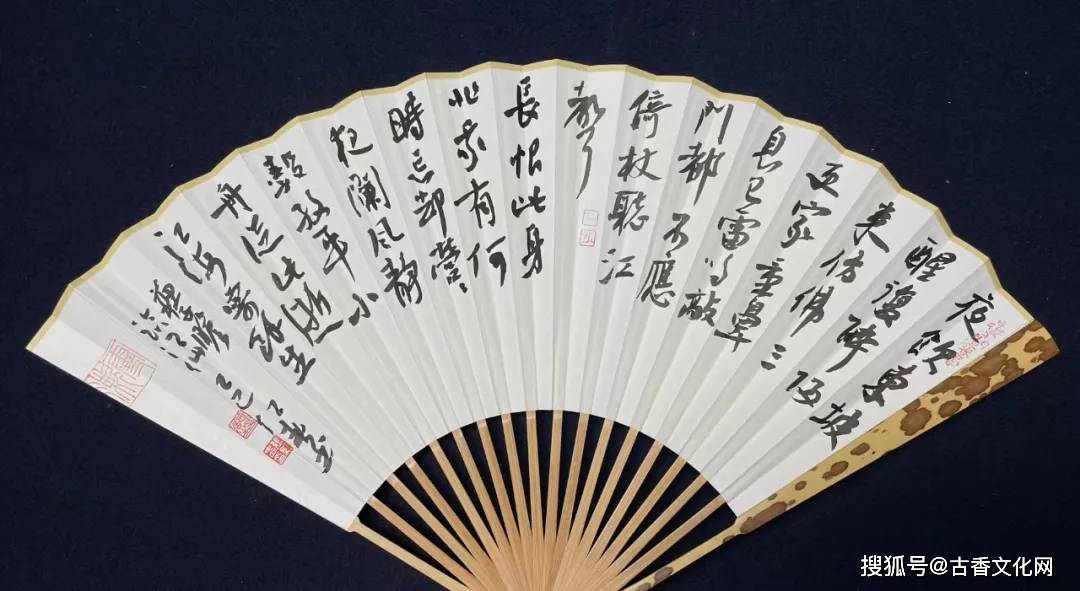 夜飲東坡
醒復醉歸
来仿佛三
更家童鼻
息已雷鸣敲
門都不應
倚杖聽江
聲
長恨此身
非我有何
時忘却營〻
夜闌風静
縠紋平小
舟從此逝
江海寄餘生
臨江仙 乙巳
搜狐号@古香文化网